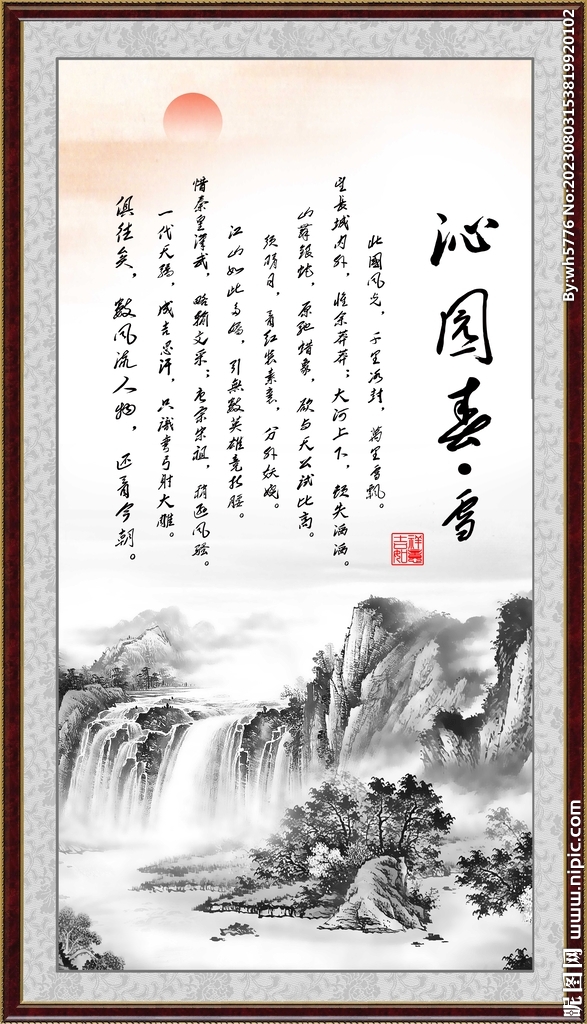 沁园春·雪
北國风光，千里冰封，萬里雪飘。
望长城内外，惟余莽莽；大河上下，顿失滔滔。
山舞银蛇，原驰蜡象，欲与天公试比高。
须晴日，看红装素裹，分外妖娆。
江山如此多娇，引無数英雄竞折腰。
惜秦皇漢武，略输文采；唐宗宋祖，稍逊风骚。
一代天骄，成吉思汗，只识弯弓射大雕。
俱往矣，数风流人物，还看今朝。
吉祥如意
By:wh5776 No:20230803153819920102
昵图网 www.nipic.com